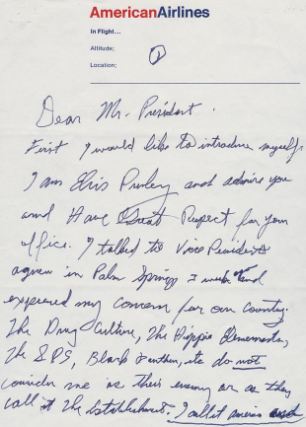 AmericanAirlines
In Flight...
Altitude;
Location;
1
Dear Mr. President.
First I would like to introduce myself.
I am Elvis Presley and admire you
and Have Great Respect for your
office. I talked to Vice President
agnew in Palm Springs 3 weeks ago and
expressed my concern for our country.
The Drug Culture, The Hippie Elements,
The SDS, Black Panthers, etc do not
consider me as their enemy or as they
call it The Establishment. I call it America and